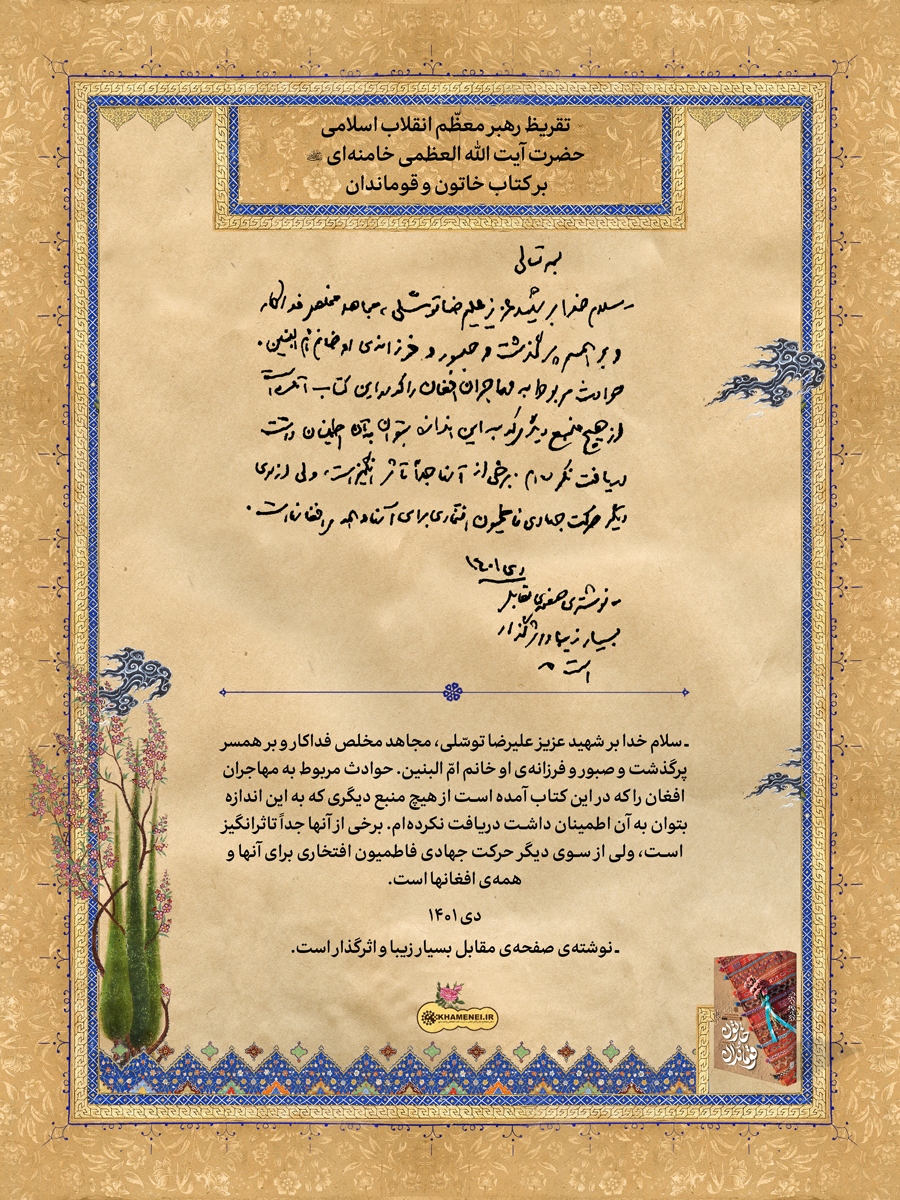 تقریظ رهبر معظّم انقلاب اسلامی
حضرت آیت الله العظمی خامنه‌ای
بر کتاب خاتون و قوماندان
بسمه تعالی
ـ سلام خدا بر شهید عزیز علیرضا توسّلی، مجاهد مخلص فداکار
و بر همسر پرگذشت و صبور و فرزانه‌ی او خانم امّ البنین.
حوادث مربوط به مهاجران افغان را که در این کتاب آمده است
از هیچ منبع دیگری که به این اندازه بتوان به آن اطمینان داشت
دریافت نکرده‌ام. برخی از آنها جداً تأثرانگیز است، ولی از سوی
دیگر حرکت جهادی فاطمیون افتخاری برای آنها و همه‌ی افغانها است.
دی ۱۴۰۱
ـ نوشته‌ی صفحه‌ی مقابل
بسیار زیبا و اثرگذار
است
ـ سلام خدا بر شهید عزیز علیرضا توسّلی، مجاهد مخلص فداکار و بر همسر
پرگذشت و صبور و فرزانه‌ی او خانم امّ البنین. حوادث مربوط به مهاجران
افغان را که در این کتاب آمده است از هیچ منبع دیگری که به این اندازه
بتوان به آن اطمینان داشت دریافت نکرده‌ام. برخی از آنها جداً تاثرانگیز
است، ولی از سوی دیگر حرکت جهادی فاطمیون افتخاری برای آنها و
همه‌ی افغانها است.
دی ۱۴۰۱
ـ نوشته‌ی صفحه‌ی مقابل بسیار زیبا و اثرگذار است.
KHAMENEI.IR
خاتون
و قوماندان